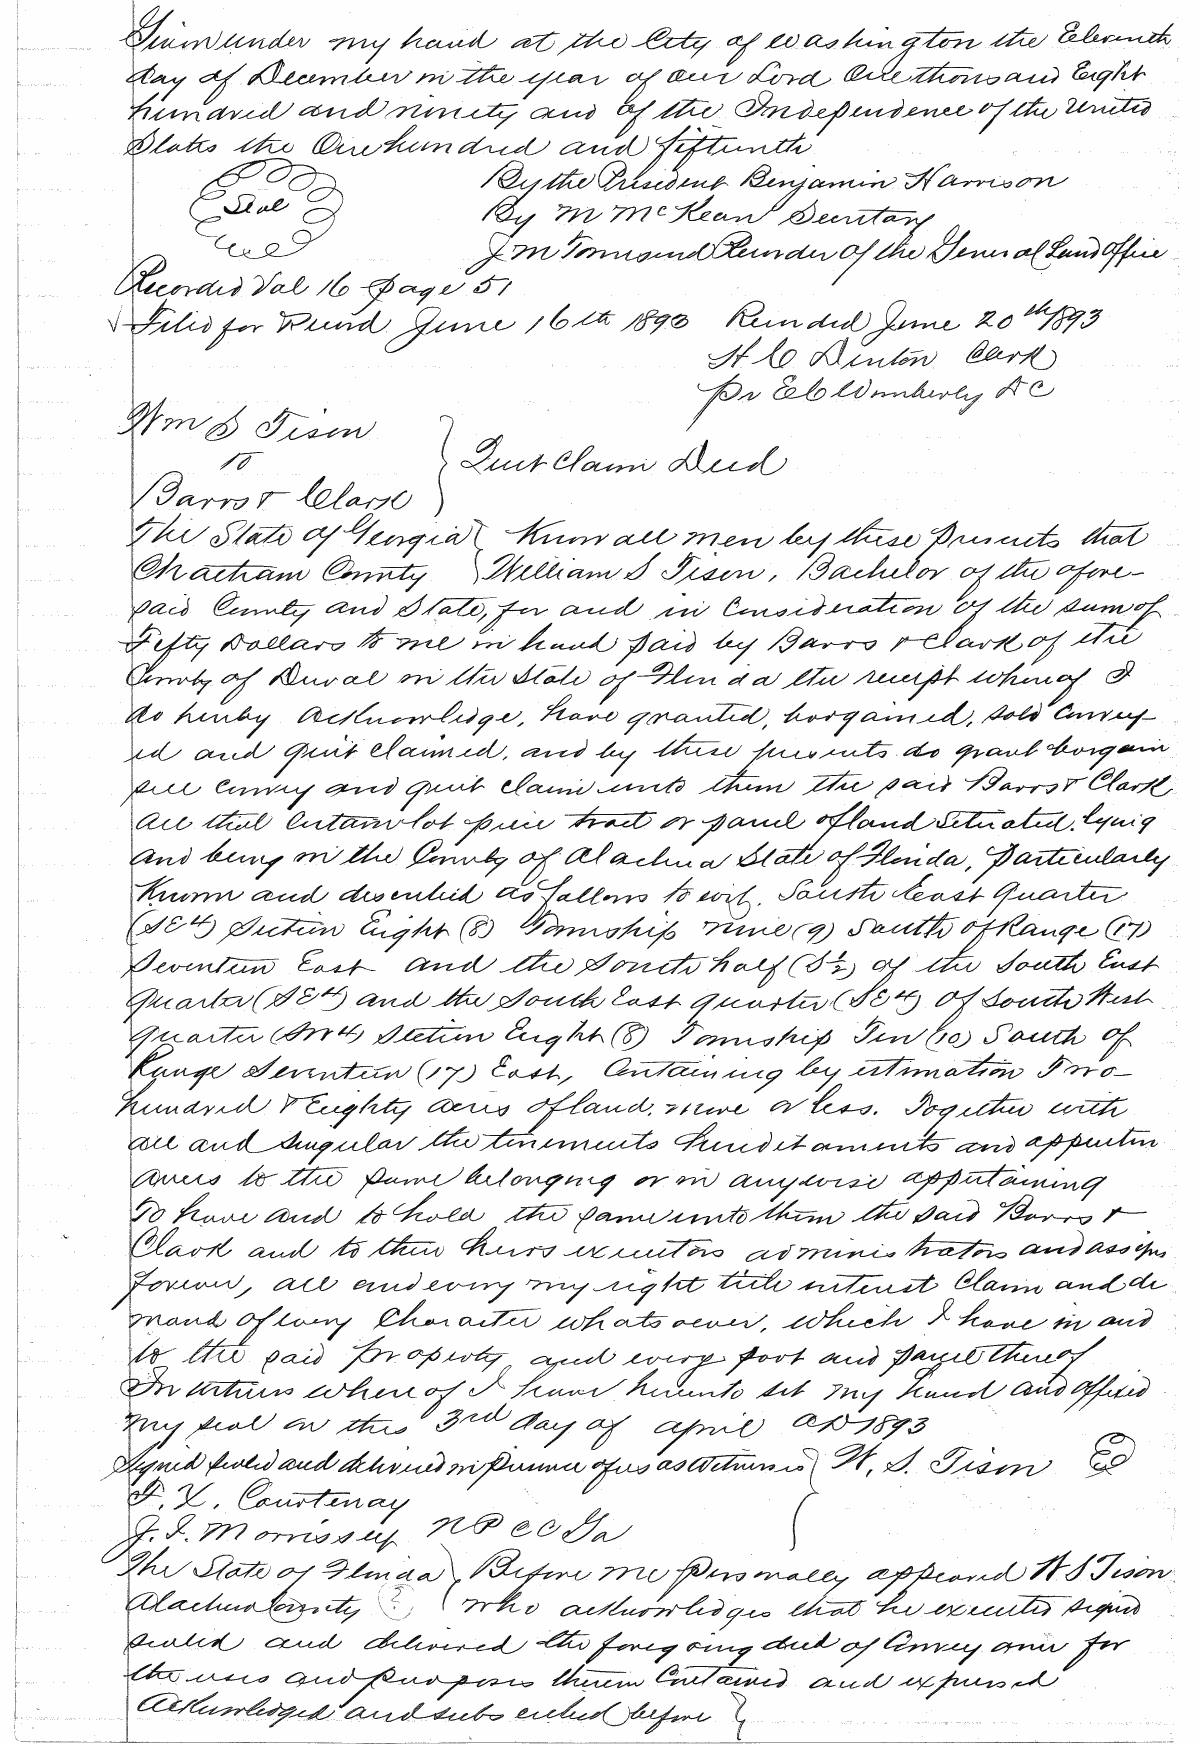 Given under my hand at the City of Washington the Eleventh
day of December in the year of our Lord One thousand Eight
hundred and ninety and of the Independence of the United
States the One hundred and fifteenth
By the President Benjamin Harrison
Seal
By M McKean Secretary
J M Townsend Recorder of the General Land Office
Recorded Vol 16 Page 51
Filed for Record June 16th 1893 Recorded June 20th 1893
H C Denton Clerk
pr E C Wimberly D C
Wm S Tison
to
Quit Claim Deed
Barrs & Clark
The State of Georgia Know all men by these Presents that
Chatham County William S Tison, Bachelor of the afore-
said County and State, for and in Consideration of the sum of
Fifty Dollars to me in hand paid by Barrs & Clark of the
County of Duval in the State of Florida the receipt whereof I
do hereby acknowledge, have granted, bargained, sold Convey-
ed and quit claimed, and by these presents do grant bargain
sell convey and quit claim unto them the said Barrs & Clark
all that certain lot piece tract or parcel of land situated, lying
and being in the County of Alachua State of Florida, particularly
Known and described as follows to wit, South East Quarter
(SE4) Section Eight (8) Township nine (9) South of Range (17)
Seventeen East and the South half (S½) of the South East
quarter (SE4) and the South East quarter (SE4) of South West
quarter (SW4) Section Eight (8) Township Ten (10) South of
Range Seventeen (17) East, Containing by estimation Two
hundred & Eighty acres of land, more or less. Together with
all and singular the tenements hereditaments and appurten
ances to the same belonging or in anywise appertaining
To have and to hold the same unto them the said Barrs &
Clark and to their heirs executors administrators and assigns
forever, all and every my right title interest Claim and de
mand of every Character whatsoever, which I have in and
to the said property and every foot and parcel thereof
In witness whereof I have hereunto set my hand and affixed
my seal on this 3rd day of april AD 1893
Signed sealed and delivered in presence of us as Witnesses W. S. Tison
F. X. Courtenay
J. F. Morrissey N P C C Ga
The State of Florida Before me personally appeared W S Tison
Alachua County who acknowledges that he executed signed
sealed and delivered the foregoing deed of Conveyance for
the uses and purposes therein Contained and expressed
Acknowledged and subscribed before